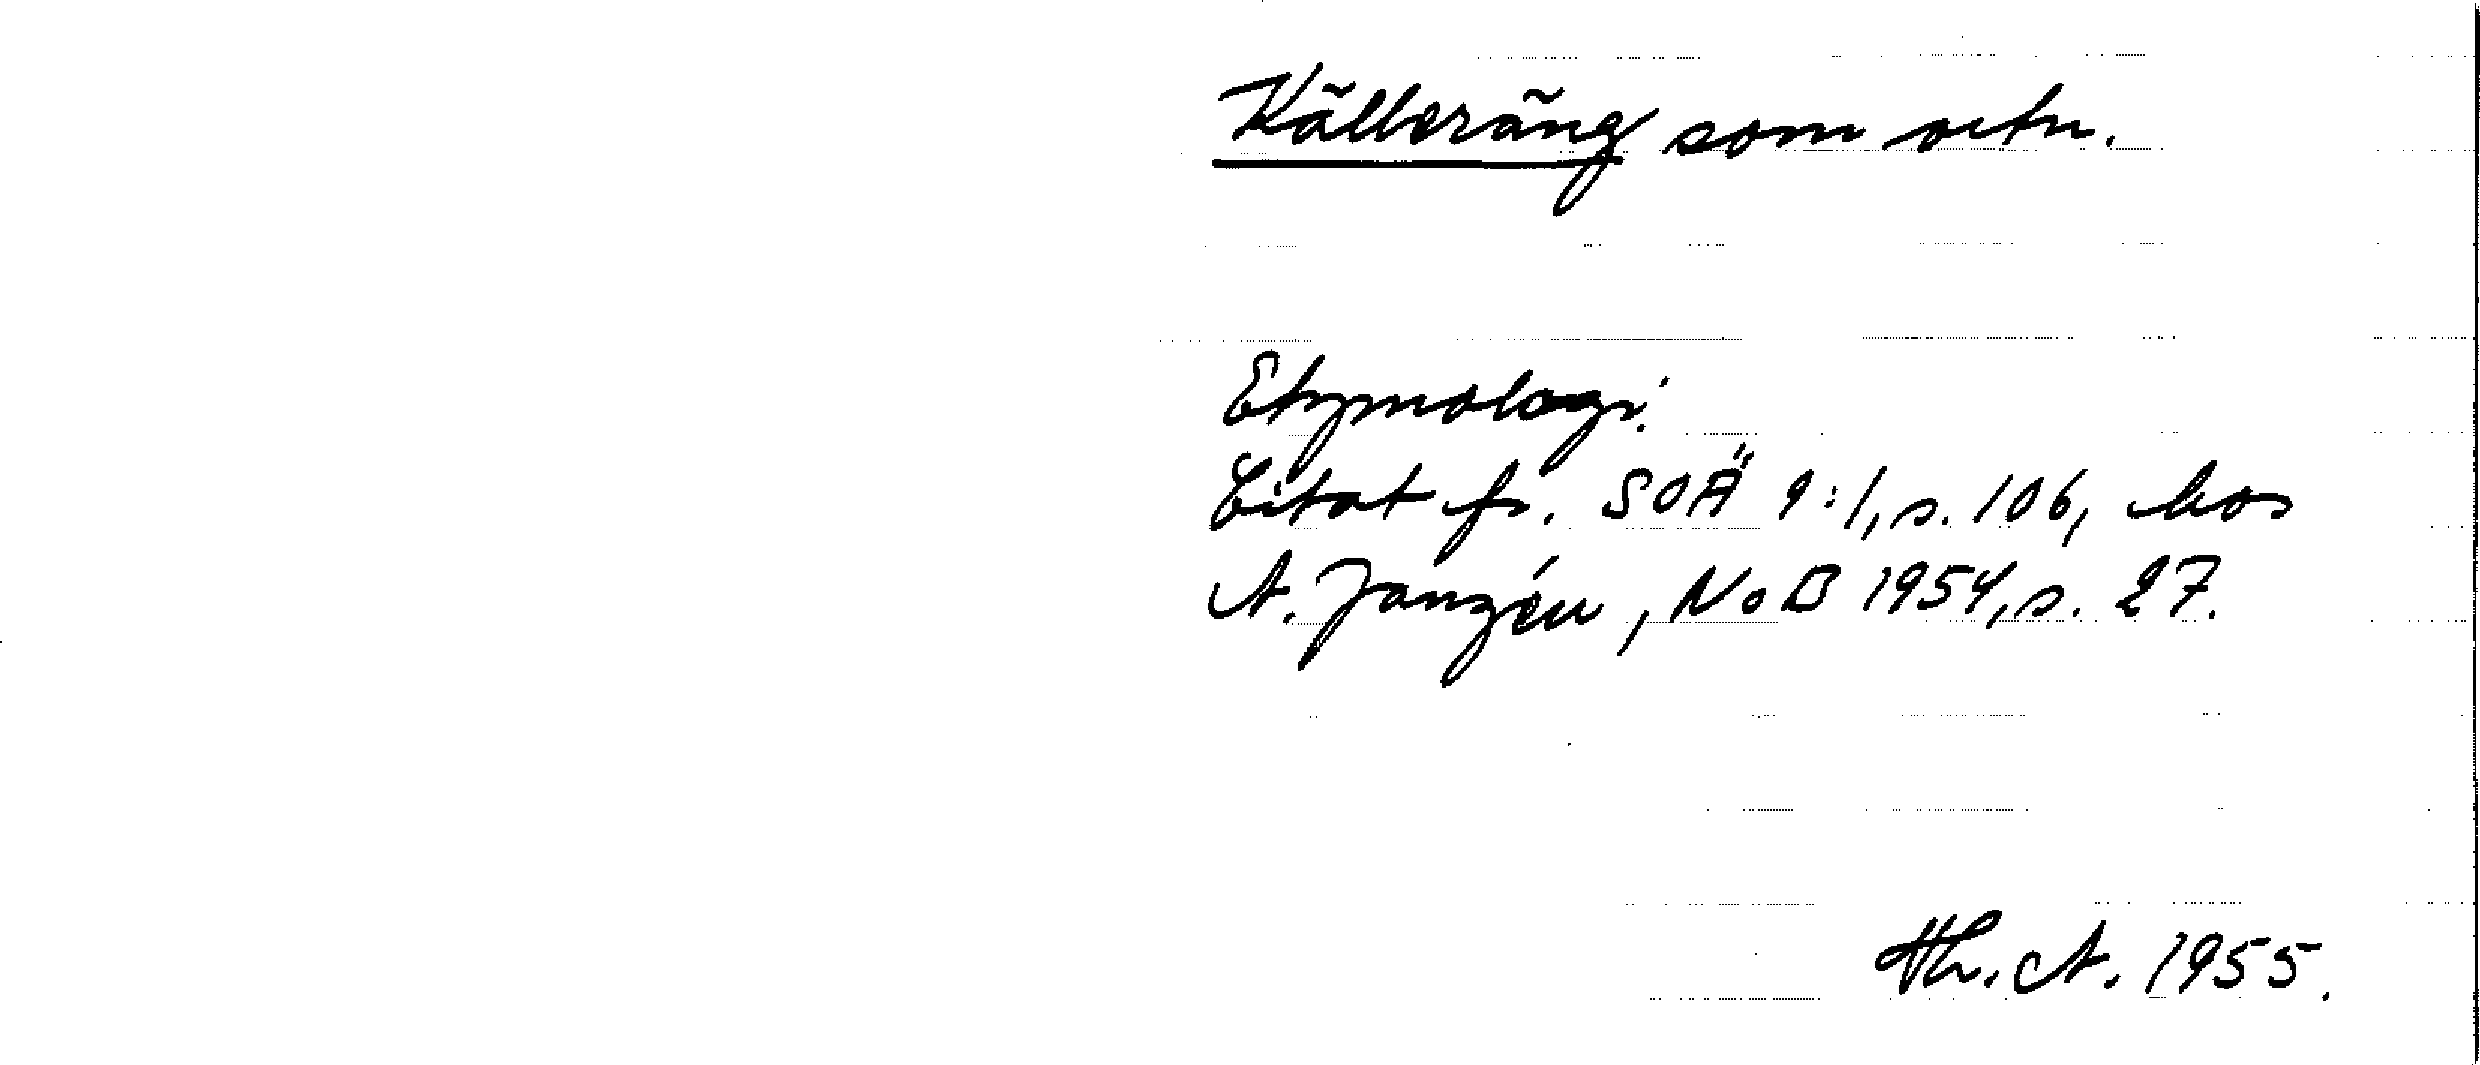 Källeräng som ortn.
Etymologi.
Citat fr. SOÄ 9:1, s. 106, hos
A. Janzén, NoB 1954, s. 27.
Hh. A. 1955.